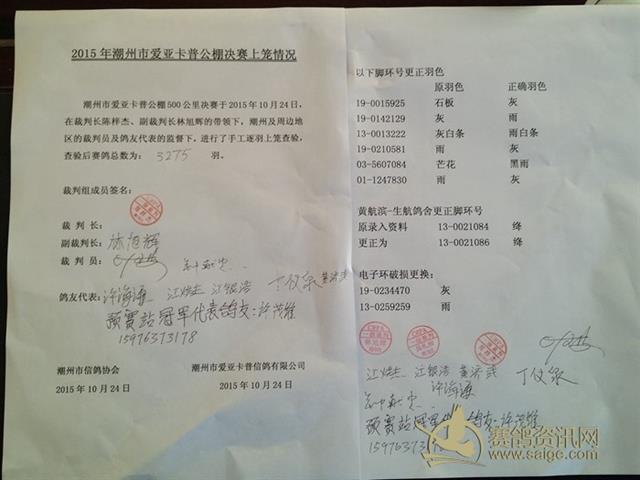 2015年潮州市爱亚卡普公棚决赛上笼情况
潮州市爱亚卡普公棚500公里决赛于2015年10月24日,
在裁判长陈梓杰、副裁判长林旭辉的带领下,潮州及周边地
区的裁判员及鸽友代表的监督下,进行了手工逐羽上笼查验,
查验后赛鸽总数为: 3275 羽。
裁判组成员签名:
裁 判 长:
副裁判长: 林旭辉
裁 判 员:
鸽友代表: 许海源
预赛站冠军代表鸽友:许茂雄
15976373178
潮州市信鸽协会 潮州市爱亚卡普信鸽有限公司
2015年10月24日 2015年10月24日
以下脚环号更正羽色
原羽色 正确羽色
19-0015925 石板 灰
19-0142129 灰 雨
13-0013222 灰白条 雨白条
19-0210581 雨 灰
03-5607084 芒花 黑雨
01-1247830 雨 灰
黄航滨-生航鸽舍更正脚环号
原录入资料 13-0021084 绛
更正为 13-0021086 绛
电子环破损更换:
19-0234470 灰
13-0259259 雨
许海源
预赛站冠军代 鸽友:许茂雄
赛鸽资讯网
www.saige.com